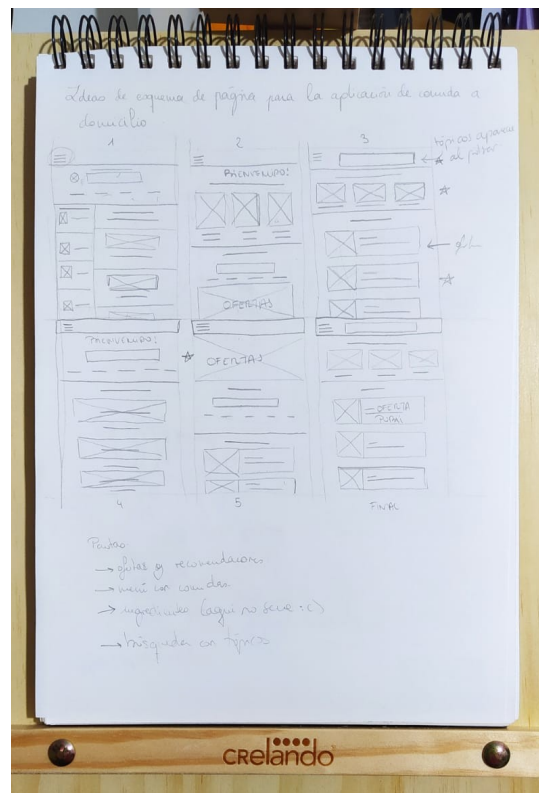 Ideas de esquema de página para la aplicación de comida a
domicilio
1
2
3
tópicos aparecen
al pulsar
BIENVENIDO!
OFERTAS
BIENVENIDO!
OFERTAS
OFERTA
4
5
FINAL
→ ofertas y recomendaciones
→ menú con comidas
→ ingredientes (aquí no sería :c)
→ búsqueda con tópicos
crelando